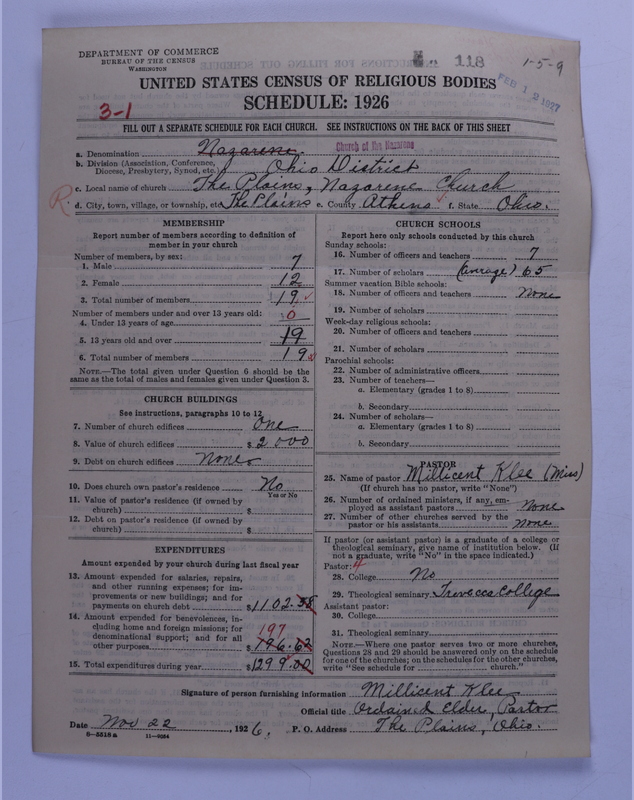 DEPARTMENT OF COMMERCE
BUREAU OF THE CENSUS
WASHINGTON
118
1-5-9
FEB 12 1927
UNITED STATES CENSUS OF RELIGIOUS BODIES
SCHEDULE: 1926
3-1
FILL OUT A SEPARATE SCHEDULE FOR EACH CHURCH. SEE INSTRUCTIONS ON THE BACK OF THIS SHEET
a. Denomination Nazarene. Church of the Nazarene
b. Division (Association, Conference, Diocese, Presbytery, Synod, etc.) Ohio District
c. Local name of church The Plains, Nazarene Church
R. d. City, town, village, or township, etc. The Plains e. County Athens f. State Ohio.
MEMBERSHIP
Report number of members according to definition of
member in your church
Number of members, by sex:
1. Male 7
2. Female 12
3. Total number of members 19
Number of members under and over 13 years old:
4. Under 13 years of age 0
5. 13 years old and over 19
6. Total number of members 19
NOTE.—The total given under Question 6 should be the
same as the total of males and females given under Question 3.
CHURCH BUILDINGS
See instructions, paragraphs 10 to 12
7. Number of church edifices One
8. Value of church edifices $ 2000
9. Debt on church edifices None
10. Does church own pastor's residence No
Yes or No
11. Value of pastor's residence (if owned by
church) $
12. Debt on pastor's residence (if owned by
church) $
EXPENDITURES
Amount expended by your church during last fiscal year
13. Amount expended for salaries, repairs,
and other running expenses; for im-
provements or new buildings; and for
payments on church debt $1102.38
14. Amount expended for benevolences, in-
cluding home and foreign missions; for
denominational support; and for all
other purposes 197 $196.62
15. Total expenditures during year $1299.00
CHURCH SCHOOLS
Report here only schools conducted by this church
Sunday schools:
16. Number of officers and teachers 7
17. Number of scholars (average) 65
Summer vacation Bible schools:
18. Number of officers and teachers None
19. Number of scholars
Week-day religious schools:
20. Number of officers and teachers
21. Number of scholars
Parochial schools:
22. Number of administrative officers
23. Number of teachers—
a. Elementary (grades 1 to 8)
b. Secondary
24. Number of scholars—
a. Elementary (grades 1 to 8)
b. Secondary
PASTOR
25. Name of pastor Millicent Klee (Miss)
(If church has no pastor, write "None")
26. Number of ordained ministers, if any, em-
ployed as assistant pastors None
27. Number of other churches served by the
pastor or his assistants None
If pastor (or assistant pastor) is a graduate of a college or
theological seminary, give name of institution below. (If
not a graduate, write "No" in the space indicated.)
Pastor: 4
28. College No
29. Theological seminary Trevecca College
Assistant pastor:
30. College
31. Theological seminary
NOTE.—Where one pastor serves two or more churches,
Questions 28 and 29 should be answered only on the schedule
for one of the churches; on the schedules for the other churches,
write "See schedule for church."
Signature of person furnishing information Millicent Klee
Official title Ordained Elder, Pastor
Date Nov 22, 1926. P. O. Address The Plains, Ohio.
8-5518a 11-9054